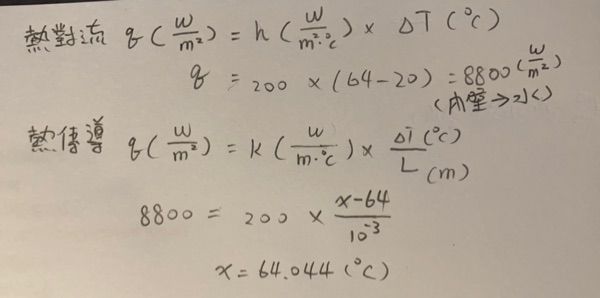 熱對流 q (W/m²) = h (W/m²·°C) × ΔT (°C)
q = 200 × (64-20) = 8800 (W/m²)
(內壁→水)
熱傳導 q (W/m²) = k (W/m·°C) × ΔT (°C)/L (m)
8800 = 200 × x-64/10⁻³
x = 64.044 (°C)